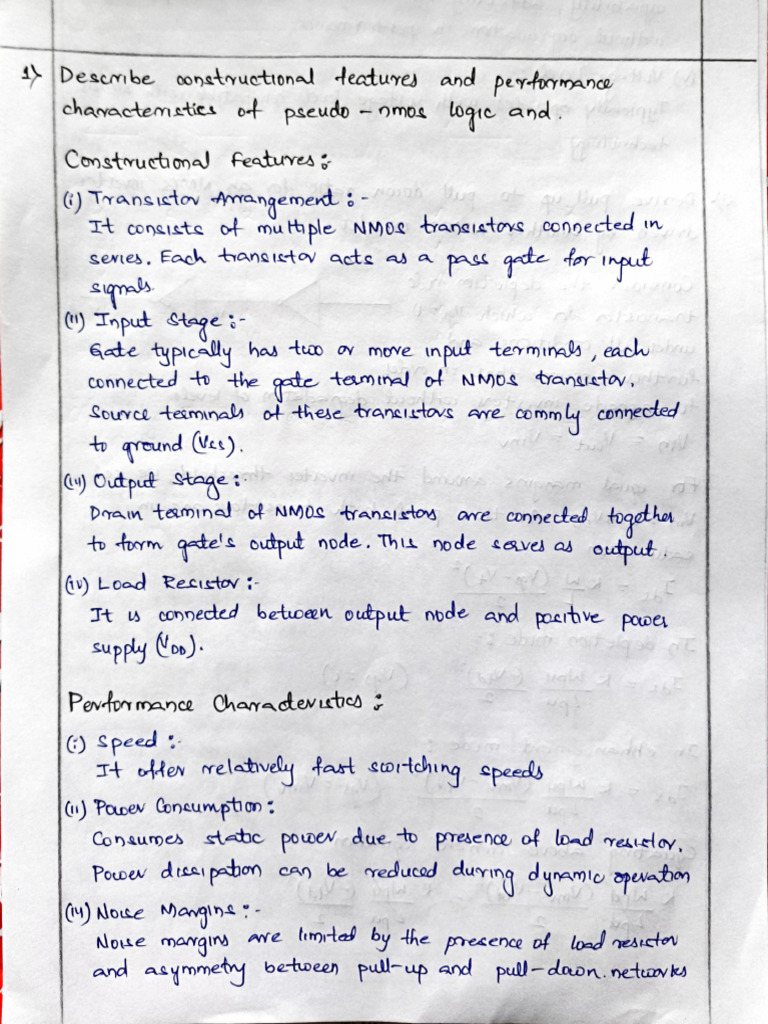 1) Describe constructional features and performance
characteristics of pseudo-nmos logic and.
Constructional Features:-
(i) Transistor Arrangement:-
It consists of multiple NMOS transistors connected in
series. Each transistor acts as a pass gate for input
signals.
(ii) Input Stage:-
Gate typically has two or more input terminals, each
connected to the gate terminal of NMOS transistor.
Source terminals of these transistors are commly connected
to ground (Vss).
(iii) Output Stage:-
Drain terminal of NMOS transistors are connected together
to form gate's output node. This node serves as output.
(iv) Load Resistor:-
It is connected between output node and positive power
supply (VDD).
Performance Characteristics:-
(i) Speed:-
It offer relatively fast switching speeds
(ii) Power Consumption:
Consumes static power due to presence of load resistor.
Power dissipation can be reduced during dynamic operation
(iii) Noise Margins:-
Noise margins are limited by the presence of load resistor
and asymmetry between pull-up and pull-down.networks